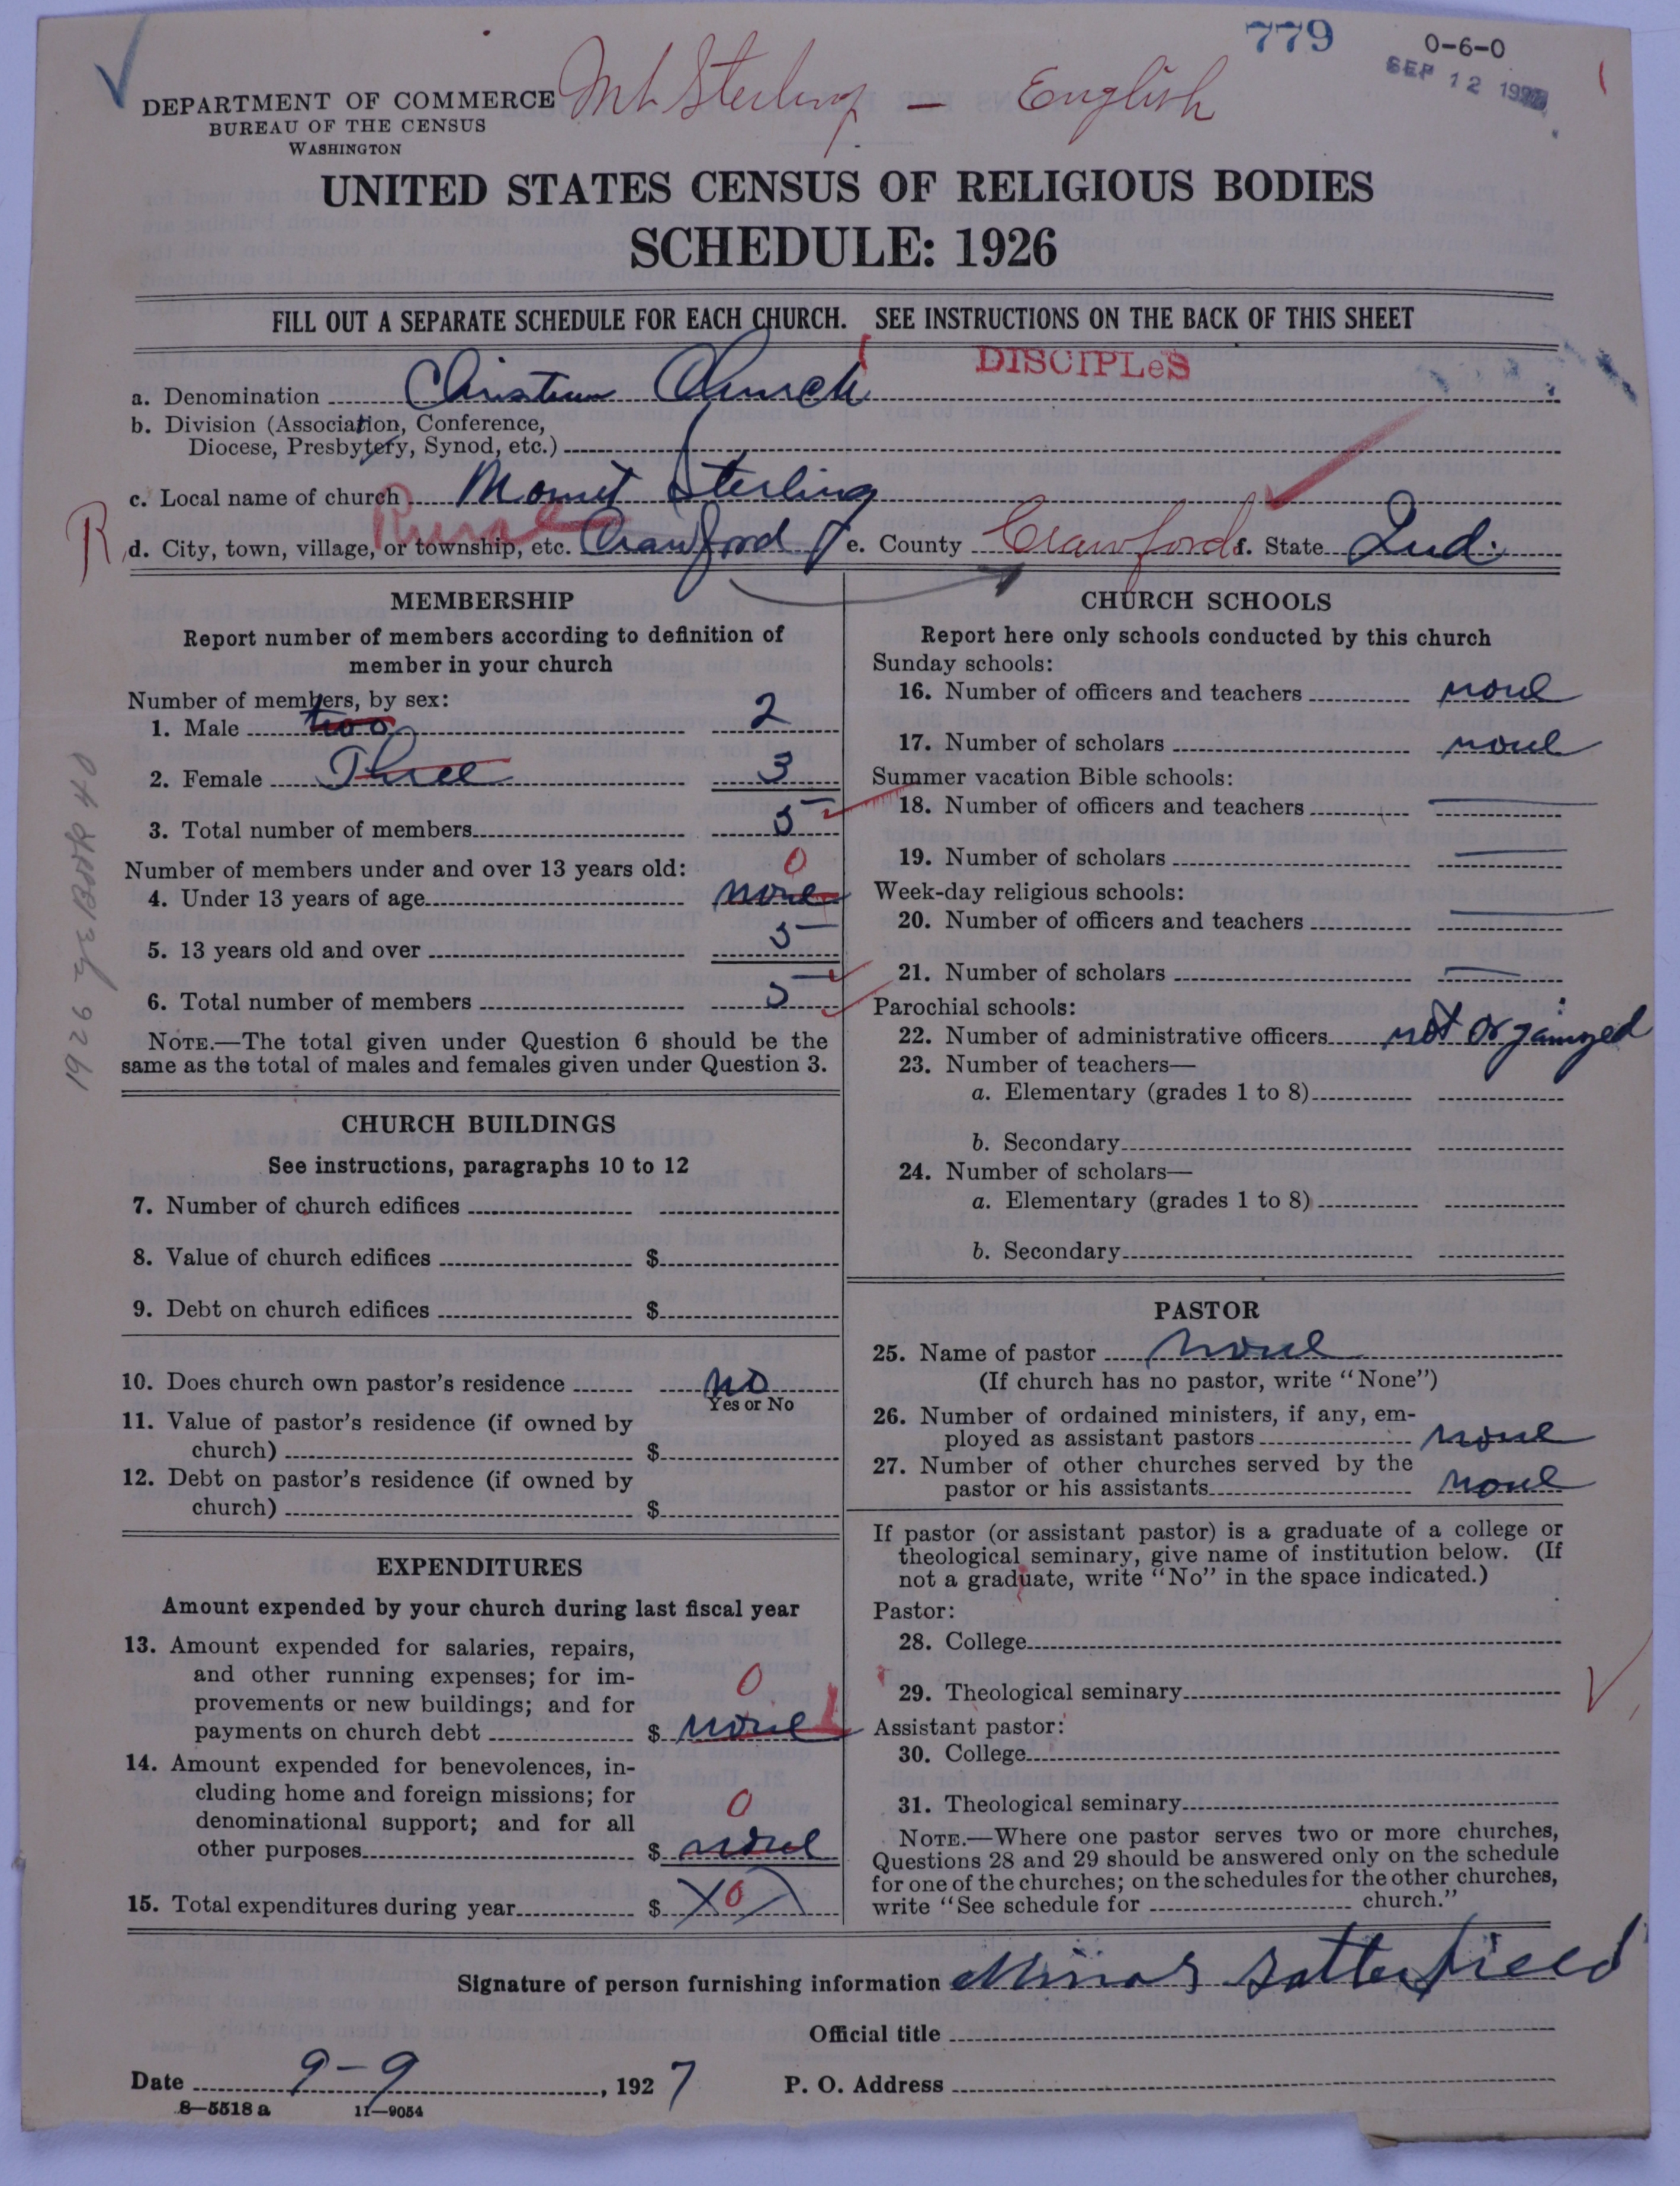 779
0-6-0
SEP 12 192
Mt Sterling – English
DEPARTMENT OF COMMERCE
BUREAU OF THE CENSUS
WASHINGTON
UNITED STATES CENSUS OF RELIGIOUS BODIES
SCHEDULE: 1926
FILL OUT A SEPARATE SCHEDULE FOR EACH CHURCH. SEE INSTRUCTIONS ON THE BACK OF THIS SHEET
DISCIPLeS
a. Denomination Christian Church
b. Division (Association, Conference,
Diocese, Presbytery, Synod, etc.)
c. Local name of church Mount Sterling
R Rural
d. City, town, village, or township, etc. Crawford e. County Crawford f. State Ind.
MEMBERSHIP
Report number of members according to definition of
member in your church
Number of members, by sex:
1. Male two 2
2. Female Three 3
3. Total number of members 5
Number of members under and over 13 years old: 0
4. Under 13 years of age none
5. 13 years old and over 5
6. Total number of members 5
NOTE.—The total given under Question 6 should be the
same as the total of males and females given under Question 3.
1926 Yr Book 40
CHURCH BUILDINGS
See instructions, paragraphs 10 to 12
7. Number of church edifices
8. Value of church edifices $
9. Debt on church edifices $
10. Does church own pastor's residence no
Yes or No
11. Value of pastor's residence (if owned by
church) $
12. Debt on pastor's residence (if owned by
church) $
EXPENDITURES
Amount expended by your church during last fiscal year
13. Amount expended for salaries, repairs,
and other running expenses; for im-
provements or new buildings; and for 0
payments on church debt $ none
14. Amount expended for benevolences, in-
cluding home and foreign missions; for
denominational support; and for all 0
other purposes $ none
15. Total expenditures during year $ 0
CHURCH SCHOOLS
Report here only schools conducted by this church
Sunday schools:
16. Number of officers and teachers none
17. Number of scholars none
Summer vacation Bible schools:
18. Number of officers and teachers
19. Number of scholars
Week-day religious schools:
20. Number of officers and teachers
21. Number of scholars
Parochial schools:
22. Number of administrative officers not organized
23. Number of teachers—
a. Elementary (grades 1 to 8)
b. Secondary
24. Number of scholars—
a. Elementary (grades 1 to 8)
b. Secondary
PASTOR
25. Name of pastor none
(If church has no pastor, write "None")
26. Number of ordained ministers, if any, em-
ployed as assistant pastors none
27. Number of other churches served by the
pastor or his assistants none
If pastor (or assistant pastor) is a graduate of a college or
theological seminary, give name of institution below. (If
not a graduate, write "No" in the space indicated.)
Pastor:
28. College
29. Theological seminary
Assistant pastor:
30. College
31. Theological seminary
NOTE.—Where one pastor serves two or more churches,
Questions 28 and 29 should be answered only on the schedule
for one of the churches; on the schedules for the other churches,
write "See schedule for church."
Signature of person furnishing information Satterfield
Official title
Date 9-9, 1927 P. O. Address
8—5518 a 11—9054